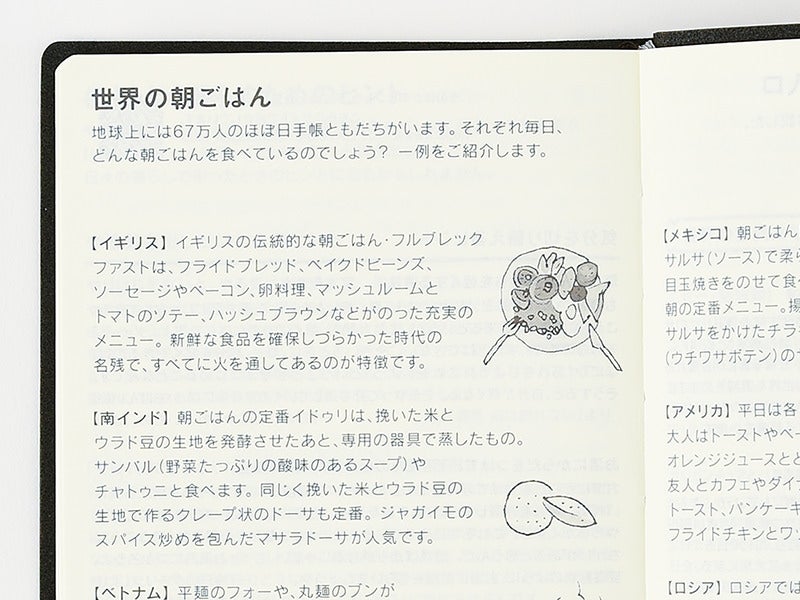 世界の朝ごはん
地球上には67万人のほぼ日手帳ともだちがいます。それぞれ毎日、
どんな朝ごはんを食べているのでしょう? 一例をご紹介します。
【イギリス】イギリスの伝統的な朝ごはん・フルブレック
ファストは、フライドブレッド、ベイクドビーンズ、
ソーセージやベーコン、卵料理、マッシュルームと
トマトのソテー、ハッシュブラウンなどがのった充実の
メニュー。新鮮な食品を確保しづらかった時代の
名残で、すべてに火を通してあるのが特徴です。
【南インド】朝ごはんの定番イドゥリは、挽いた米と
ウラド豆の生地を発酵させたあと、専用の器具で蒸したもの。
サンバル(野菜たっぷりの酸味のあるスープ)や
チャトゥニと食べます。同じく挽いた米とウラド豆の
生地で作るクレープ状のドーサも定番。ジャガイモの
スパイス炒めを包んだマサラドーサが人気です。
【ベトナム】平麺のフォーや、丸麺のブンが
【メキシコ】朝ごはん
サルサ(ソース)で柔ら
目玉焼きをのせて食べ
朝の定番メニュー。揚
サルサをかけたチラ
(ウチワサボテン)の
【アメリカ】平日は各
大人はトーストやベー
オレンジジュースとと
友人とカフェやダイナ
トースト、パンケーキ
フライドチキンとワッ
【ロシア】ロシアでは